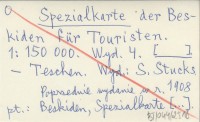 Spezialkarte der Bes-
kiden für Touristen.
1:150 000. Wyd. 4. [   ]
— Teschen. Wyd: S. Stucks
Poprzednie wydanie w r. 1908
pt.: Beskiden, Spezialkarte [...].